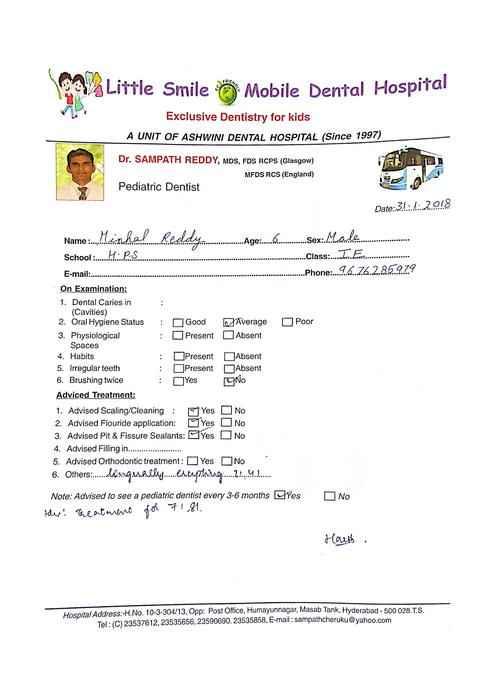 Little Smile Mobile Dental Hospital
Exclusive Dentistry for kids
A UNIT OF ASHWINI DENTAL HOSPITAL (Since 1997)
Dr. SAMPATH REDDY, MDS, FDS RCPS (Glasgow)
MFDS RCS (England)
Pediatric Dentist
Date: 31.1.2018
Name: Minhal Reddy Age: 6 Sex: Male
School: H.P.S Class: I E
E-mail: Phone: 9676285979
On Examination:
1. Dental Caries in :
(Cavities)
2. Oral Hygiene Status : Good Average Poor
3. Physiological : Present Absent
Spaces
4. Habits : Present Absent
5. Irregular teeth : Present Absent
6. Brushing twice : Yes No
Adviced Treatment:
1. Advised Scaling/Cleaning : Yes No
2. Advised Flouride application: Yes No
3. Advised Pit & Fissure Sealants: Yes No
4. Advised Filling in
5. Advised Orthodontic treatment: Yes No
6. Others: lingually erupting 31,41
Note: Advised to see a pediatric dentist every 3-6 months Yes No
Adv: treatment for 71,81.
Hospital Address:-H.No. 10-3-304/13, Opp: Post Office, Humayunnagar, Masab Tank, Hyderabad - 500 028.T.S.
Tel : (C) 23537612, 23535656, 23590690, 23535858, E-mail : sampathcheruku@yahoo.com